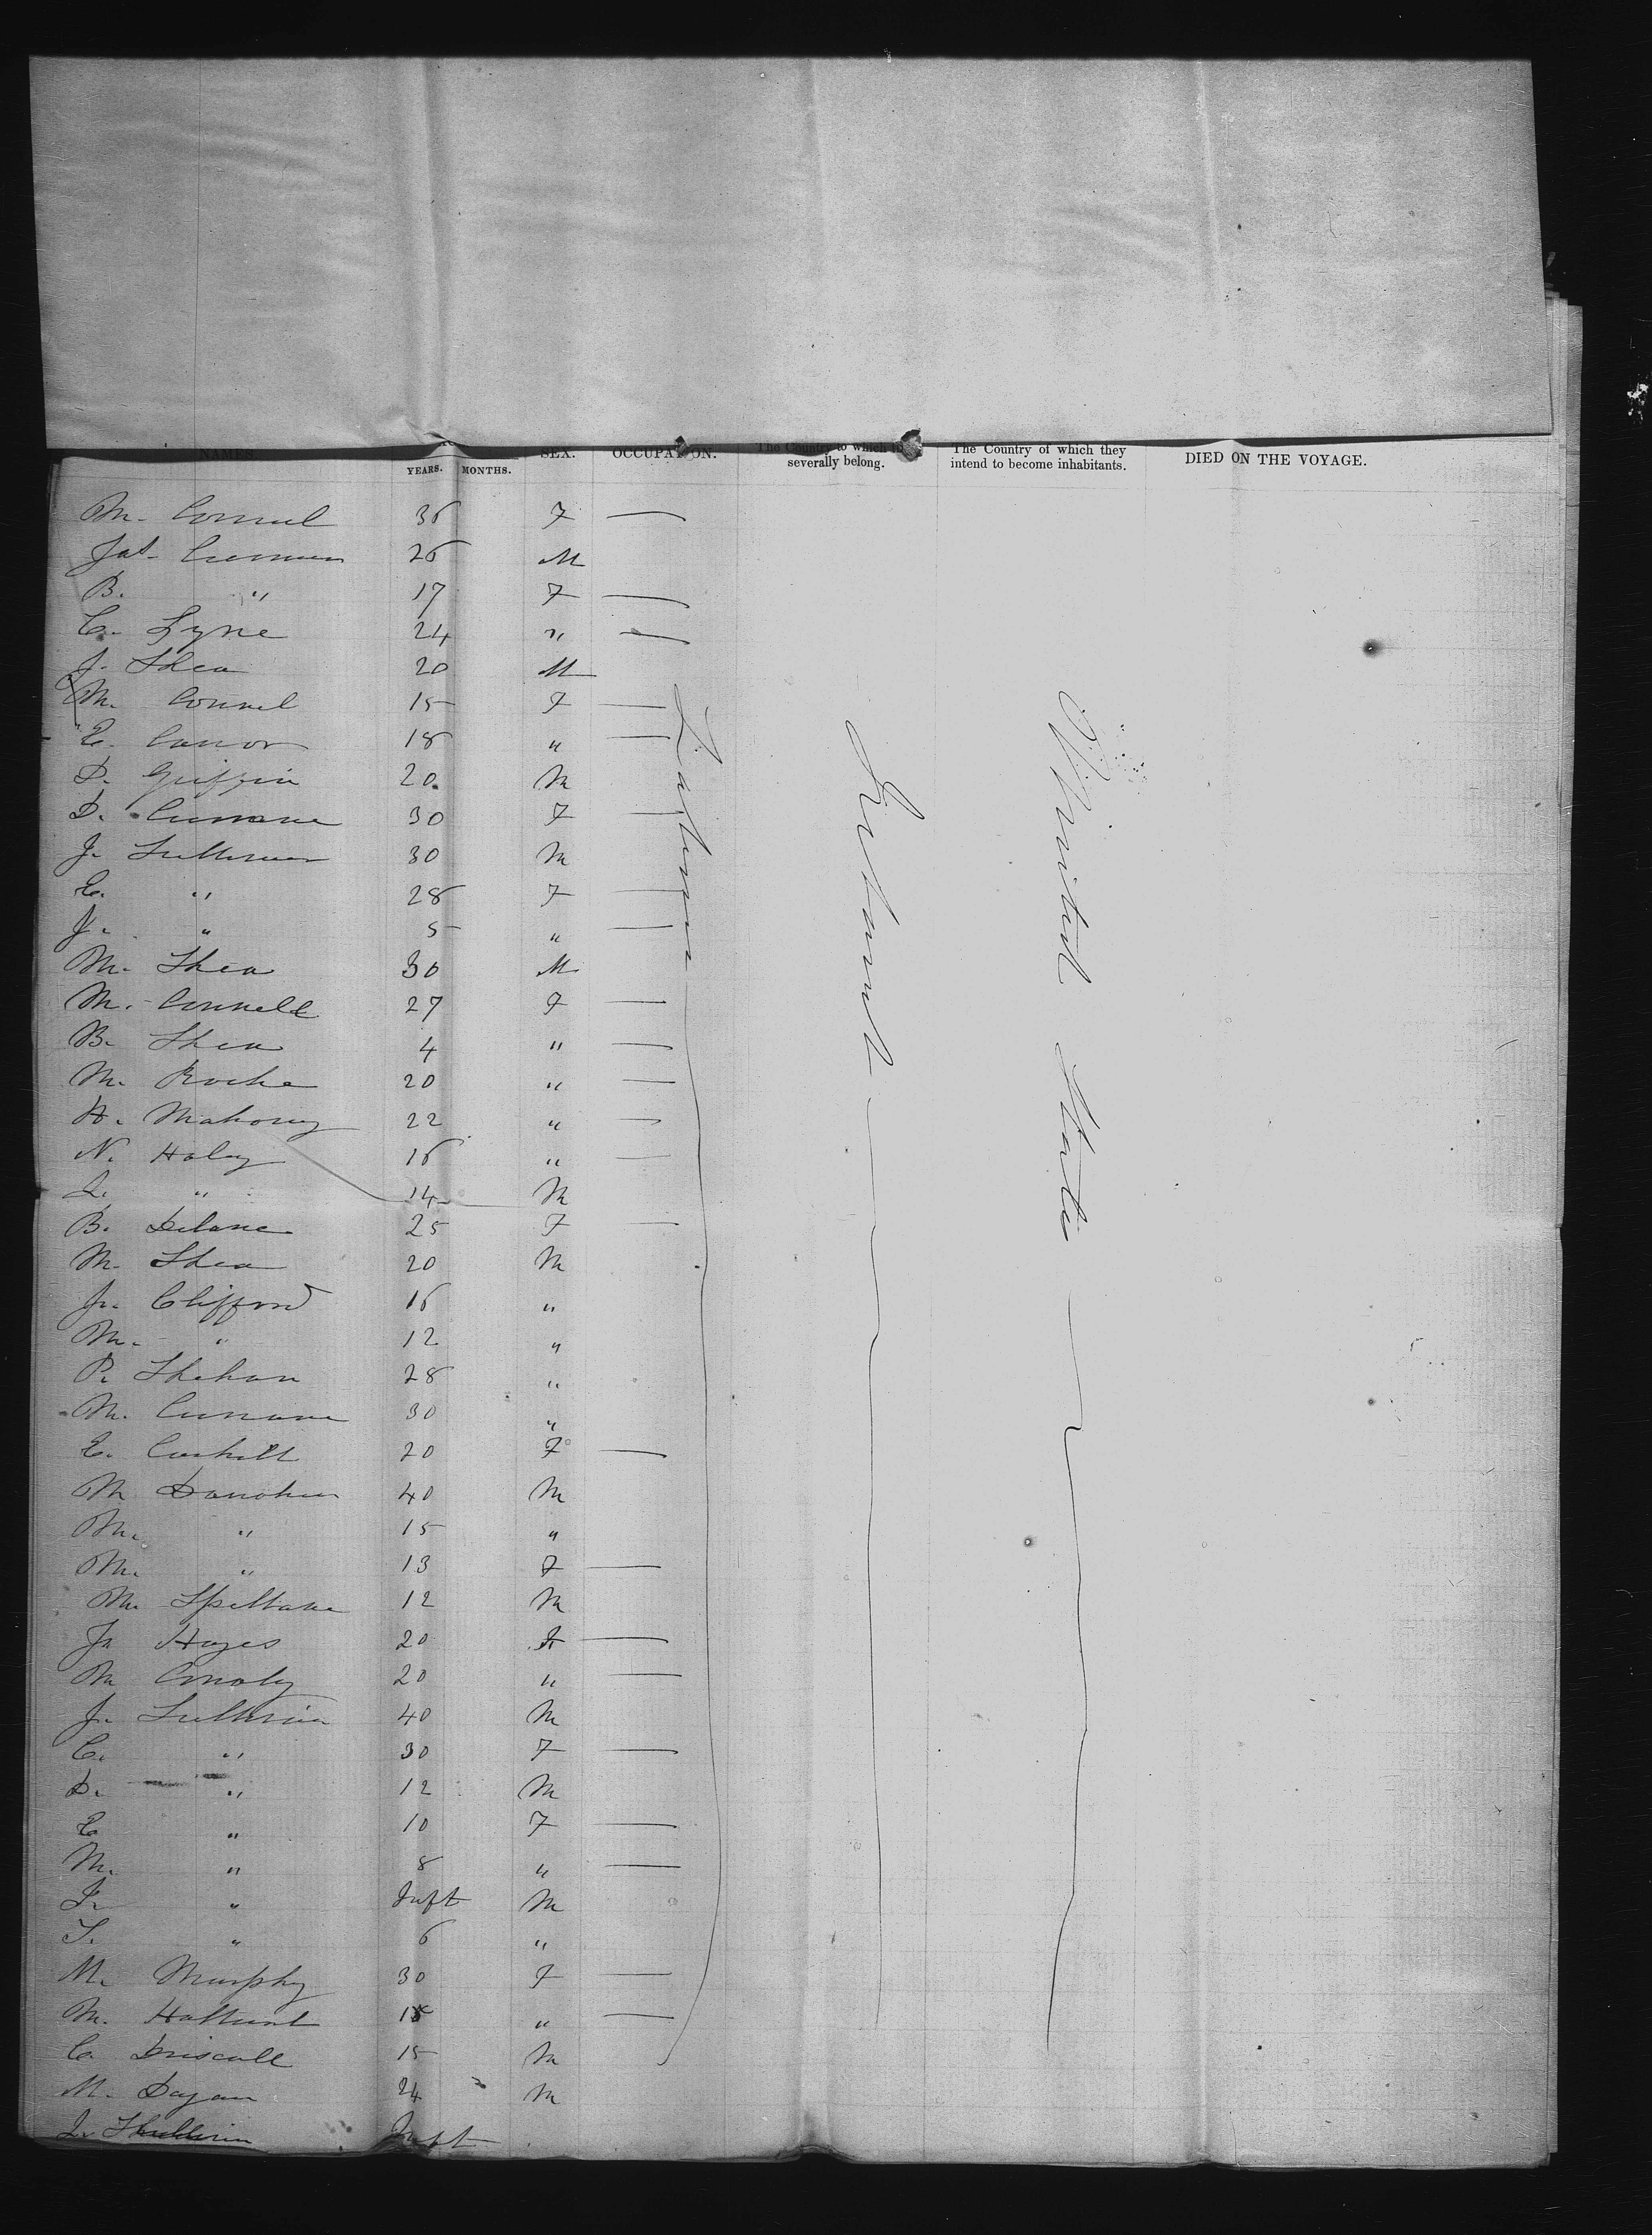 NAME YEARS. MONTHS. SEX. OCCUPATION. The Country to which they severally belong. The Country of which they intend to become inhabitants. DIED ON THE VOYAGE.
M. Connel 36 F —
Jas. 26 M
B. " 17 F —
C. Lyne 24 " —
J. Shea 20 M
M. Connel 15 F —
E. Connor 18 " —
P. Griffin 20 M
D. Currane 30 F —
J. Sullivan 30 M
E. " 28 F —
J. " 5 " —
M. Shea 30 M
M. Connell 27 F —
B. Shea 4 " —
M. Roche 20 " —
H. Mahony 22 " —
N. Haley 16 " —
" 14 M
B. Delane 25 F —
M. Shea 20 M
J. Clifford 16 "
M. " 12 "
P. Shehan 28 "
M. Currane 30 "
E. Cashill 20 F —
M Donohue 40 M
M. " 15 "
M. " 13 F —
M. Spellane 12 M
J. Hayes 20 F —
M Conoly 20 " —
J. Sullivan 40 M
C. " 30 F —
D. " 12 M
E " 10 F —
M. " 8 " —
" Inft M
T. " 6 "
M. Murphy 30 F —
M. "
C. Driscoll 15 M
M. 24 M
Inft
Laborers
Ireland
United States